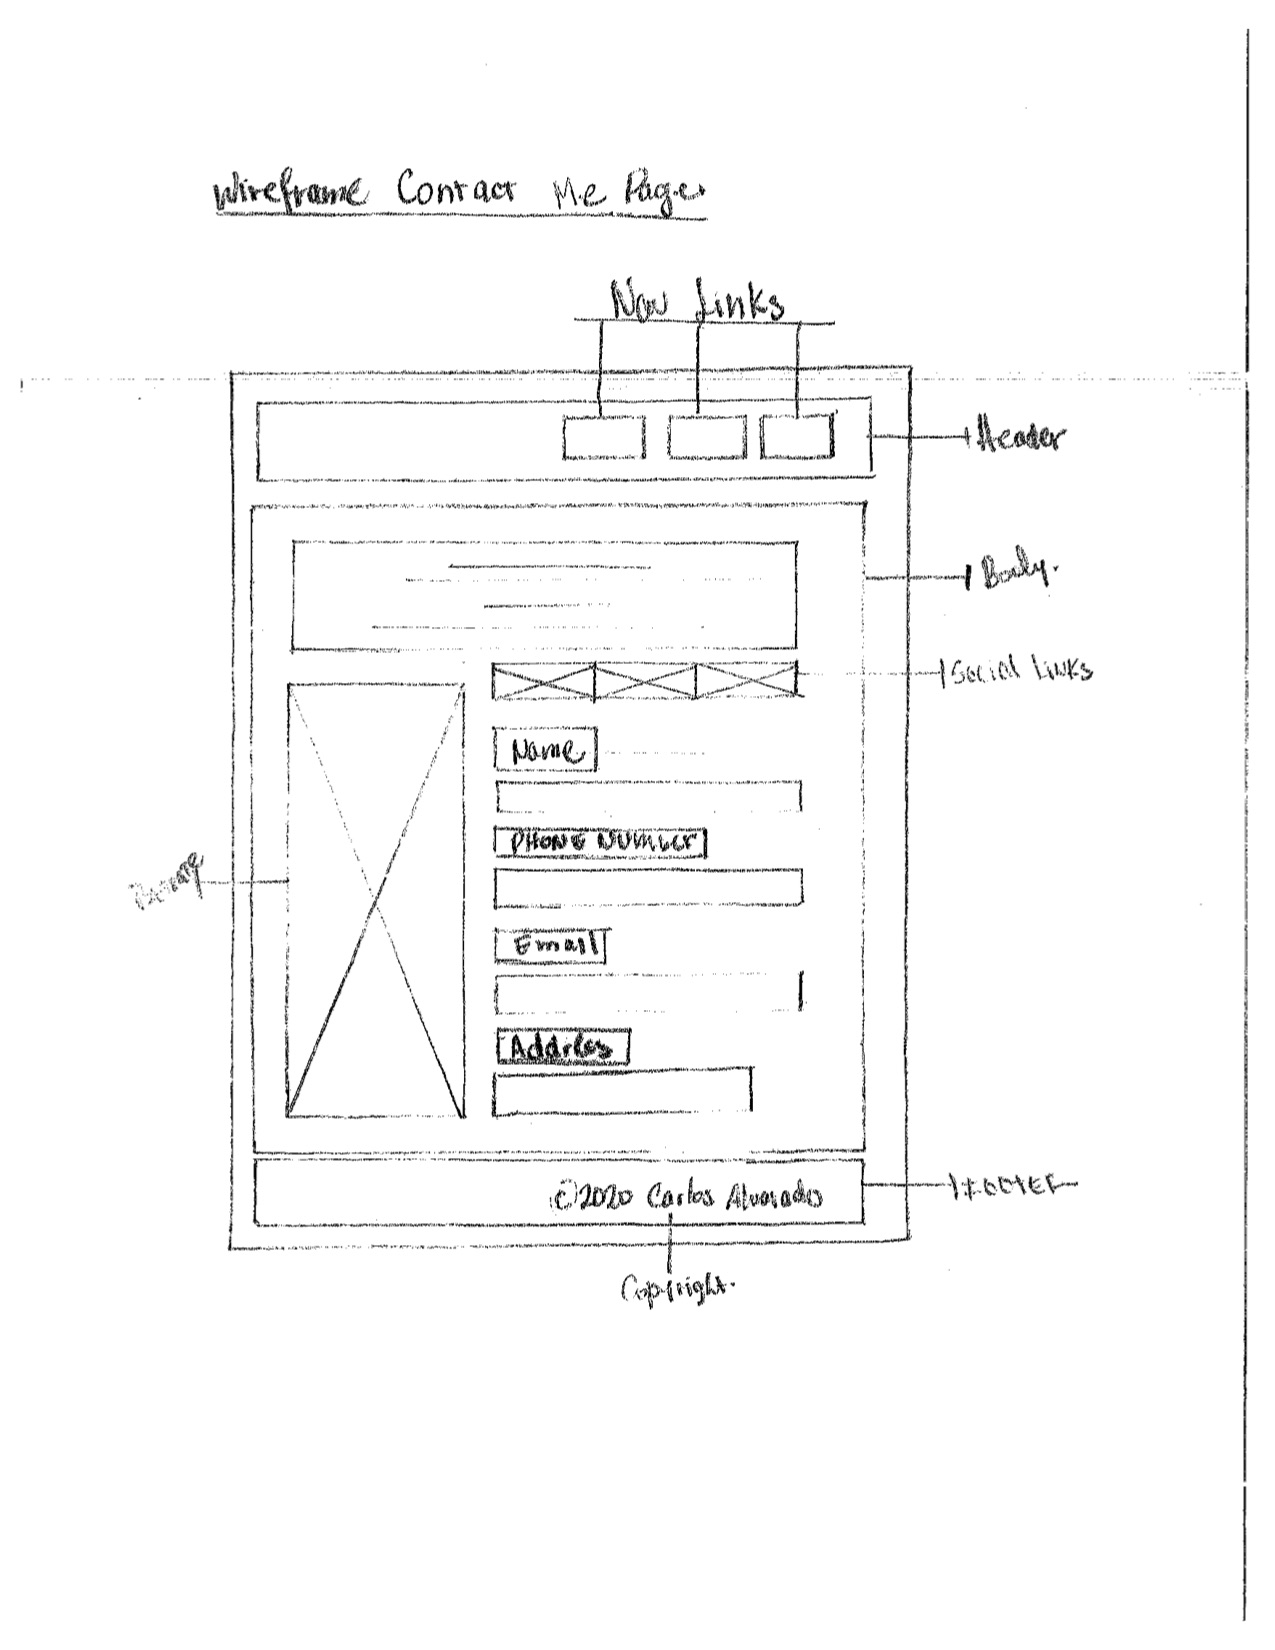 Wireframe Contact Me Page
Nav Links
Header
Body.
Social Links
Name
PHONE NUMBER
Email
Address
FOOTER
©2020 Carlos Alvarado
Copyright.